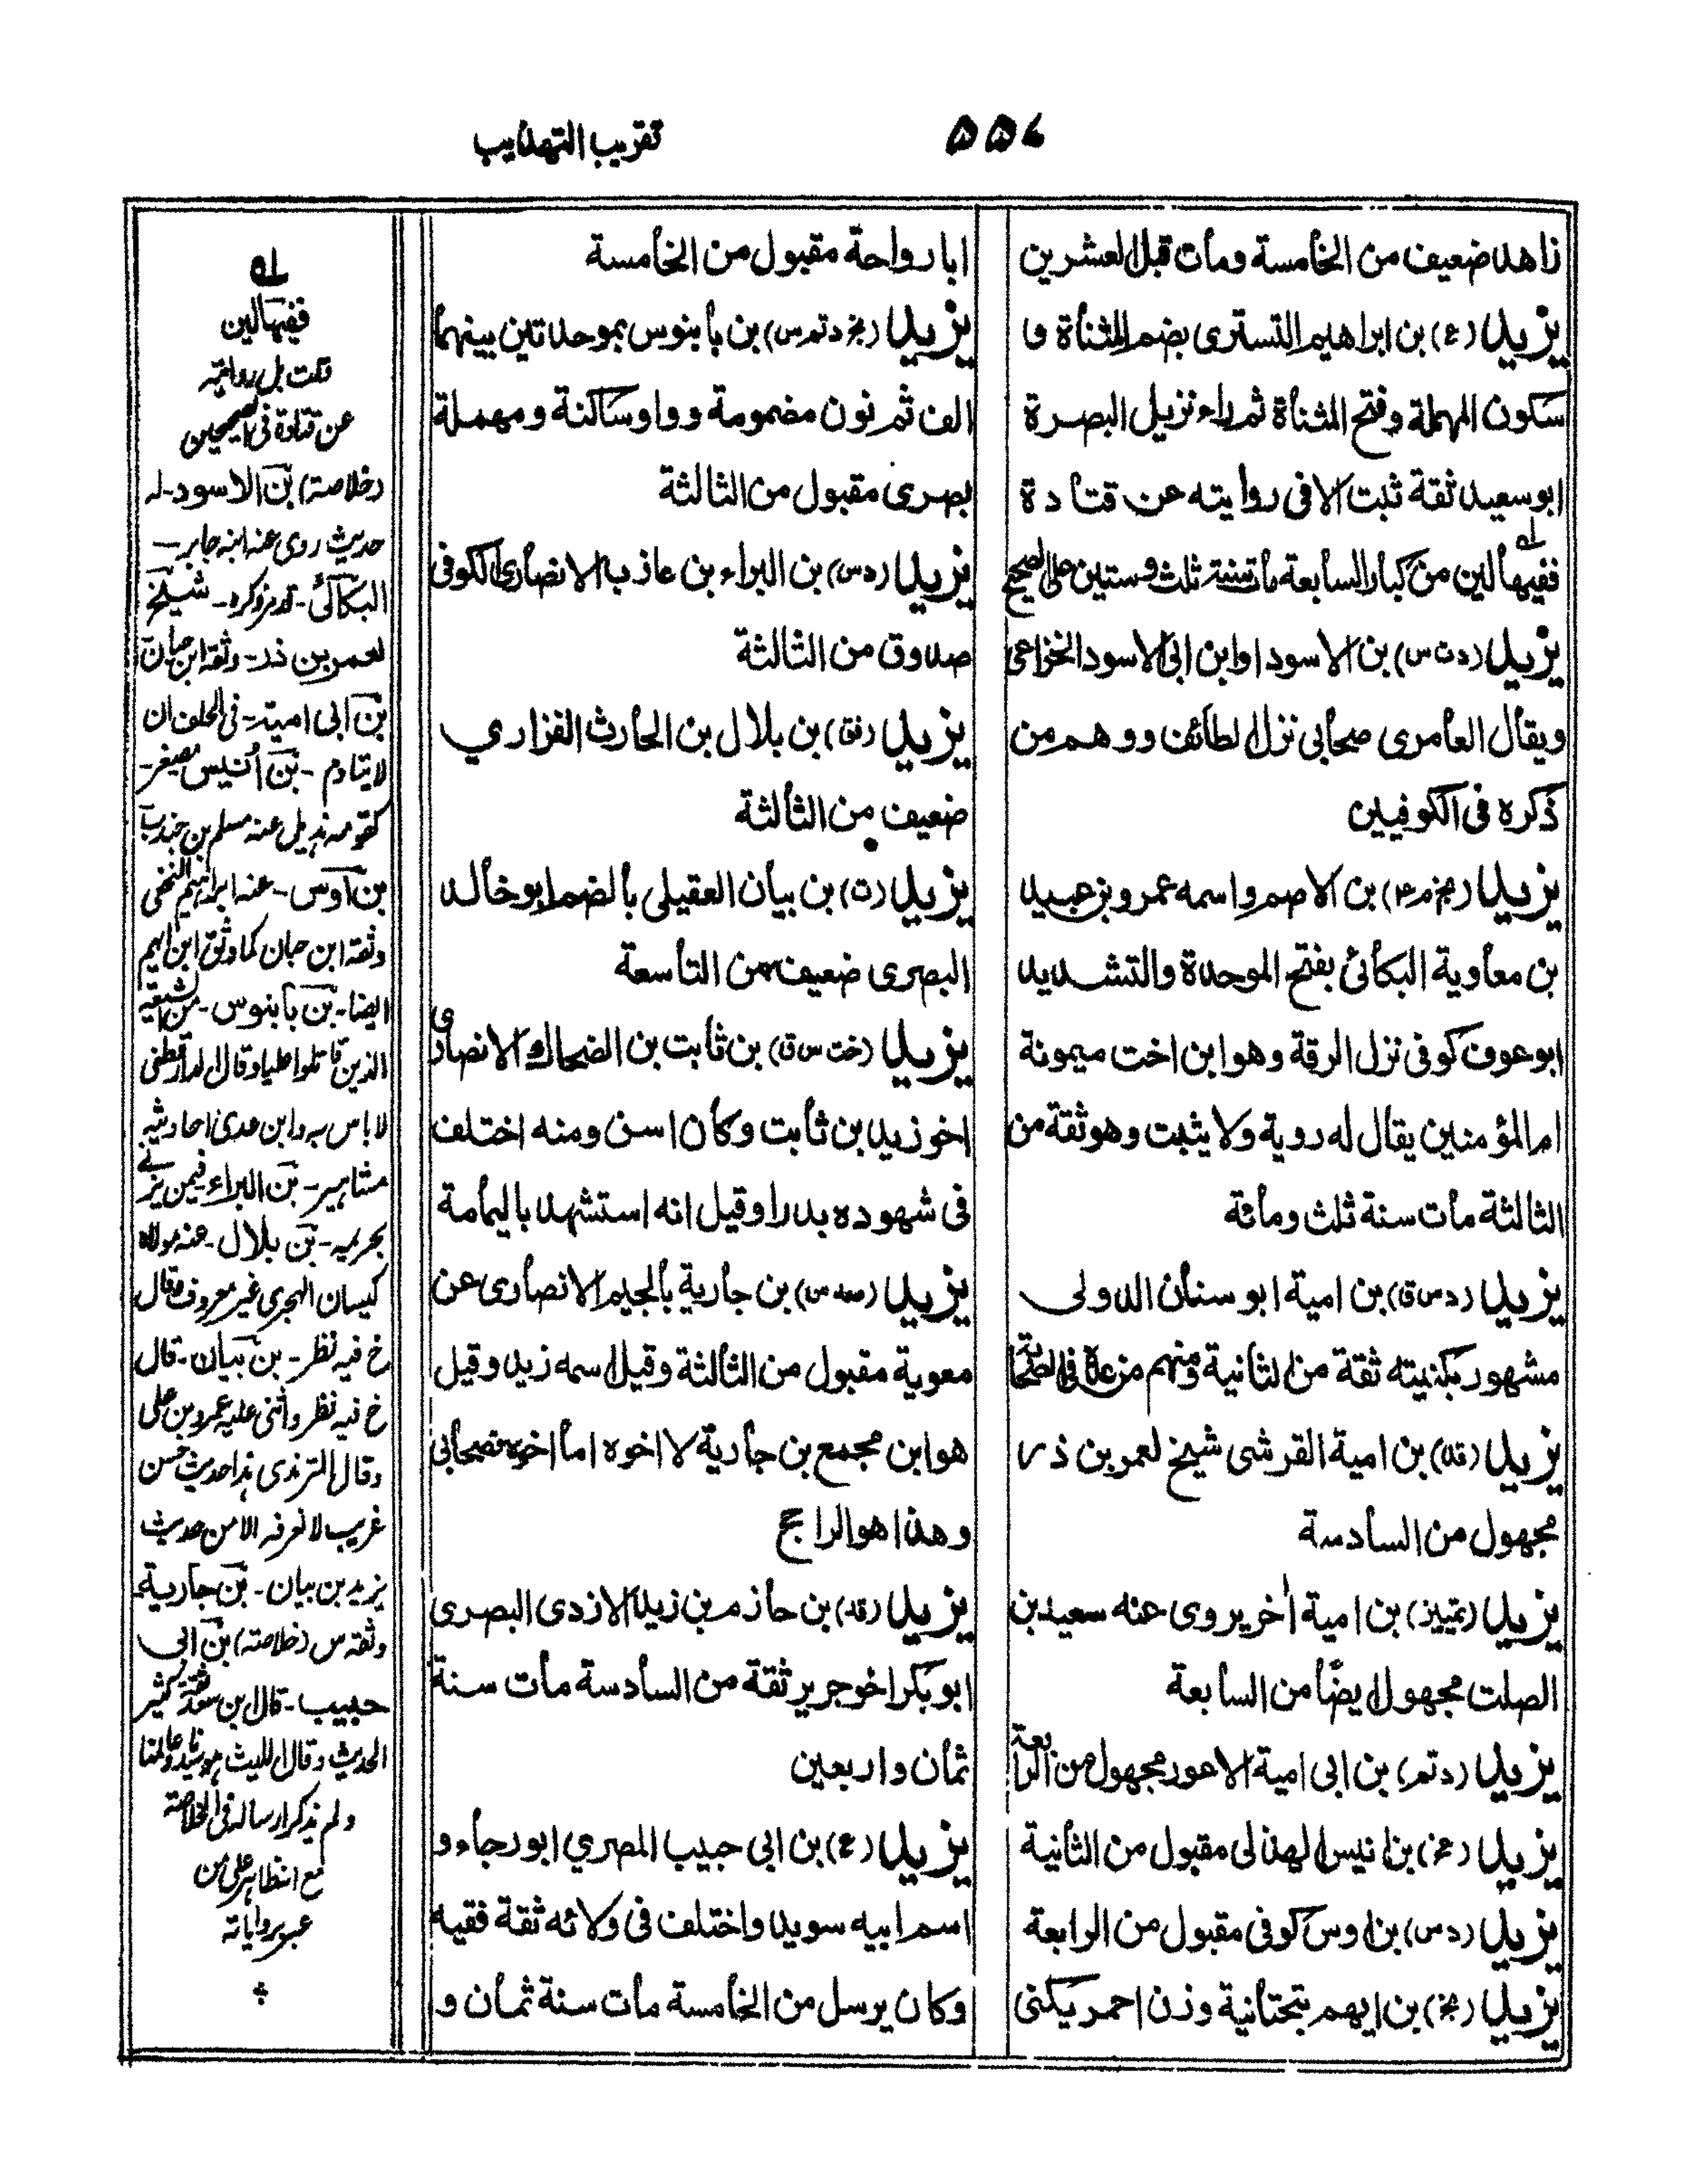 تقريب التهذيب
زاهد ضعيف من الخامسة ومات قبل العشرين
يزيد (ع) بن ابراهيم التسترى بضم المثناة و
سكون المهملة وفتح المثناة ثم راء نزيل البصرة
ابو سعيد ثقة ثبت الا فى روايته عن قتادة
ففيها لين من كبار السابعة مات سنة ثلث وستين على الصحيح
يزيد (د ت س) بن الاسود او ابن ابى الاسود الخزاعى
ويقال العامرى صحابى نزل الطائف ووهم من
ذكره فى الكوفيين
يزيد (بخ م ٤) بن الاصم واسمه عمرو بن عبيد
بن معاوية البكائى بفتح الموحدة والتشديد
ابو عوف كوفى نزل الرقة وهو ابن اخت ميمونة
ام المؤمنين يقال له روية ولا يثبت وهو ثقة من
الثالثة مات سنة ثلث ومائة
يزيد (د س ق) بن امية ابو سنان الدولى
مشهور بكنيته ثقة من الثانية ومنهم من عده فى الصحابة
يزيد (قد) بن امية القرشى شيخ لعمر بن ذر
مجهول من السادسة
يزيد (تمييز) بن امية اخر يروى عنه سعيد بن
الصلت مجهول ايضا من السابعة
يزيد (د تم) بن ابى امية الاعور مجهول من الرابعة
يزيد (عخ) بن انيس الهذلى مقبول من الثانية
يزيد (د س) بن اوس كوفى مقبول من الرابعة
يزيد (بخ) بن ايهم بتحتانية وزن احمر يكنى
ابا رواحة مقبول من الخامسة
يزيد (بخ د تم س) بن بابنوس بموحدتين بينهما
الف ثم نون مضمومة وواو ساكنة ومهملة
بصرى مقبول من الثالثة
يزيد (د س) بن البراء بن عاذب الانصارى الكوفى
صدوق من الثالثة
يزيد (فق) بن بلال بن الحارث الفزاري
ضعيف من الثالثة
يزيد (ت) بن بيان العقيلى بالضم ابو خالد
البصرى ضعيف من التاسعة
يزيد (خت س ق) بن ثابت بن الضحاك الانصارى
اخو زيد بن ثابت وكان اسن ومنه اختلف
فى شهوده بدرا وقيل انه استشهد باليمامة
يزيد (صد س) بن جارية بالجيم الانصارى عن
معوية مقبول من الثالثة وقيل اسمه زيد وقيل
هو ابن مجمع بن جارية لا اخوه اما اخوه فصحابى
وهذا هو الراجح
يزيد (قد) بن حازم بن زيد الازدى البصرى
ابو بكر اخو جرير ثقة من السادسة مات سنة
ثمان واربعين
يزيد (ع) بن ابى حبيب المصري ابو رجاء و
اسم ابيه سويد واختلف فى ولائه ثقة فقيه
وكان يرسل من الخامسة مات سنة ثمان و
له
ففيها لين
قلت بل روايته
عن قتادة فى الصحيحين
(خلاصة) بن الاسود - له
حديث روى عنه ابنه جابر -
لعمر بن ذر - وثقه ابن حبان
بن ابى امية - فى الحلف ان
لا يتادم - بن انيس مصغر -
كقومه هذيل عنه مسلم بن جندب
بن اوس - عنه ابراهيم النخعى
وثقه ابن حبان كما وثق ابن ايهم
ايضا - بن بابنوس - من الشيعة
الذين قاتلوا عليا وقال الدارقطنى
لا باس به وابن عدى احاديثه
مشاهير - بن البراء -
بن بلال - عنه مولاه
كيسان الهجرى غير معروف وقال
خ فيه نظر - بن بيان - قال
خ فيه نظر واثنى عليه عمرو بن على
وقال الترمذى هذا حديث حسن
غريب لا نعرفه الا من حديث
يزيد بن بيان - بن جارية
وثقه س (خلاصة) بن ابى
حبيب - قال ابن سعد ثقة كثير
الحديث وقال الليث هو سيدنا وعالمنا
ولم يذكر ارساله فى الخلاصة